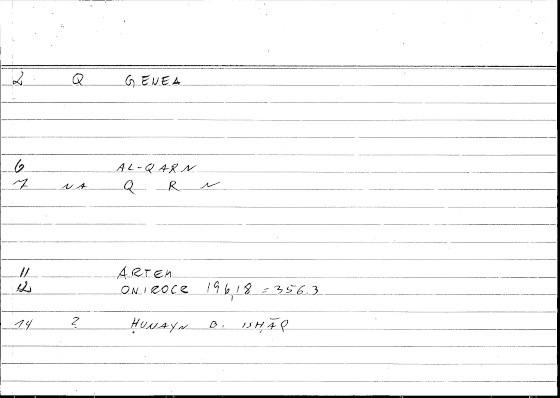 2 Q GENEA
6 AL-QARN
7 NA Q R N
11 ARTEM
12 ONIROCR 196,18 = 356.3
14 2 ḤUNAYN B. ISḤĀQ